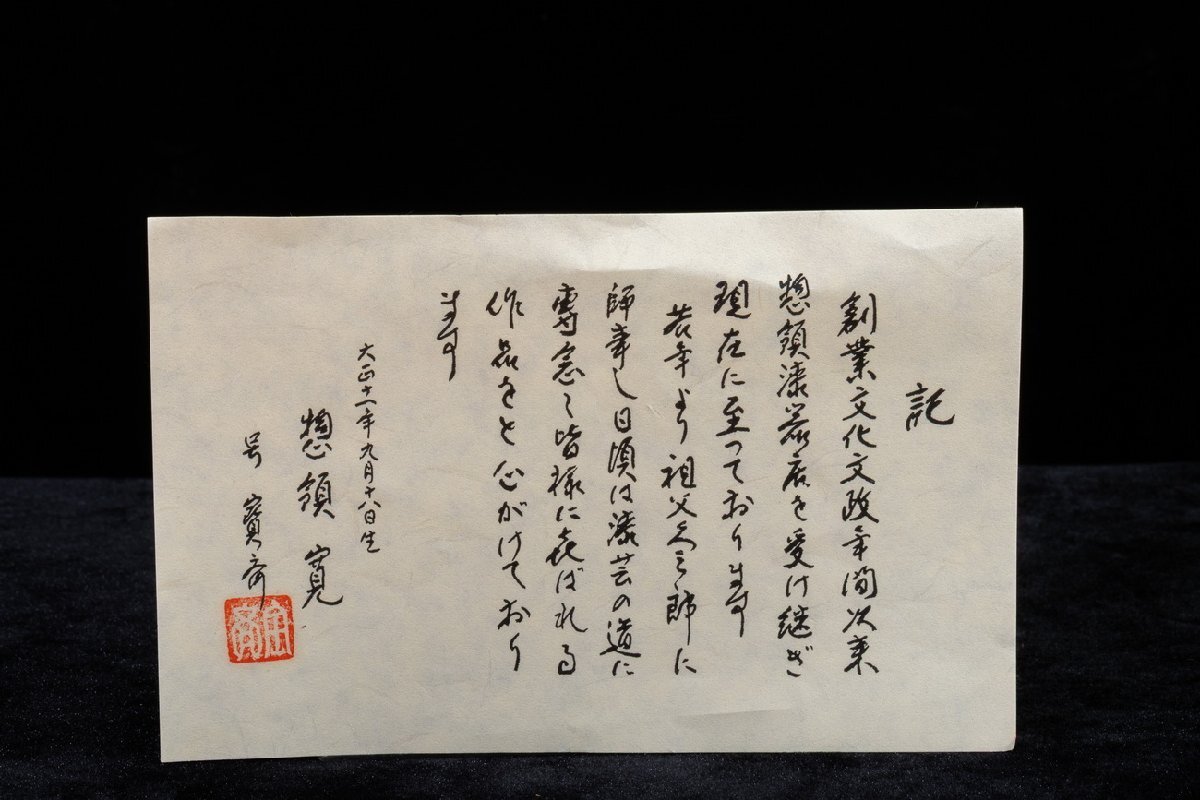 記
創業文化文政年間以来
惣領漆器店を受け継ぎ
現在に至っております
若年より祖父久三郎に
師事し日頃は漆芸の道に
専念し皆様に喜ばれる
作品をと心がけており
ます
大正十一年九月十八日生
惣領 寛
号 寶斎